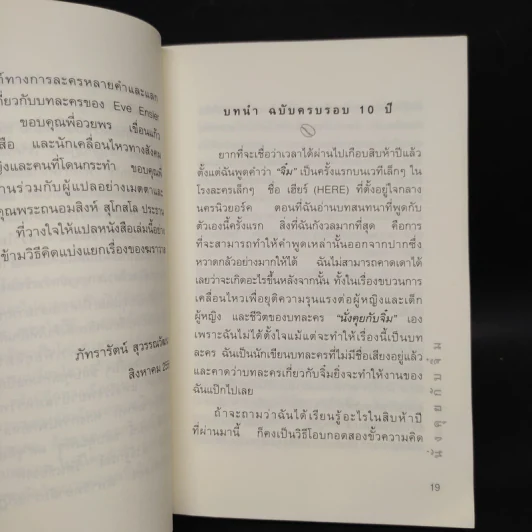 ทางการละครหลายคำและแลก
กี่ยวกับบทละครของ Eve Ensler
ขอบคุณพี่อวยพร เขื่อนแก้ว
และนักเคลื่อนไหวทางสังคม
และคนที่โดนกระทำ ขอบคุณ
งานร่วมกับผู้แปลอย่างเมตตาและ
คุณพระถนอมสิงห์ สุโกสโล ประธาน
ที่วางใจให้แปลหนังสือเล่มนี้อย่าง
ข้ามวิธีคิดแบ่งแยกเรื่องของฆราวาส
ภัทรารัตน์
สิงหาคม
บทนำ ฉบับครบรอบ 10 ปี
ยากที่จะเชื่อว่าเวลาได้ผ่านไปเกือบสิบห้าปีแล้ว
ตั้งแต่ฉันพูดคำว่า “จิ๋ม” เป็นครั้งแรกบนเวทีเล็กๆ ใน
โรงละครเล็กๆ ชื่อ เฮียร์ (HERE) ที่ตั้งอยู่ใจกลาง
นครนิวยอร์ค ตอนที่ฉันอ่านบทสนทนาที่พูดกับ
ตัวเองนี้ครั้งแรก สิ่งที่ฉันกังวลมากที่สุด คือการ
ที่จะสามารถทำให้คำพูดเหล่านั้นออกจากปากซึ่ง
หวาดกลัวอย่างมากให้ได้ ฉันไม่สามารถคาดเดาได้
เลยว่าจะเกิดอะไรขึ้นหลังจากนั้น ทั้งในเรื่องขบวนการ
เคลื่อนไหวเพื่อยุติความรุนแรงต่อผู้หญิงและเด็ก
ผู้หญิง และชีวิตของบทละคร “นั่งคุยกับจิ๋ม” เอง
เพราะฉันไม่ได้ตั้งใจแม้แต่จะทำให้เรื่องนี้เป็นบท
ละคร ฉันเป็นนักเขียนบทละครที่ไม่มีชื่อเสียงอยู่แล้ว
และคาดว่าบทละครเกี่ยวกับจิ๋มยิ่งจะทำให้งานของ
ฉันแป้กไปเลย
ถ้าจะถามว่าฉันได้เรียนรู้อะไรในสิบห้าปี
ที่ผ่านมานี้ ก็คงเป็นวิธีโอบกอดสองขั้วความคิด
นั่งคุยกับจิ๋ม
19